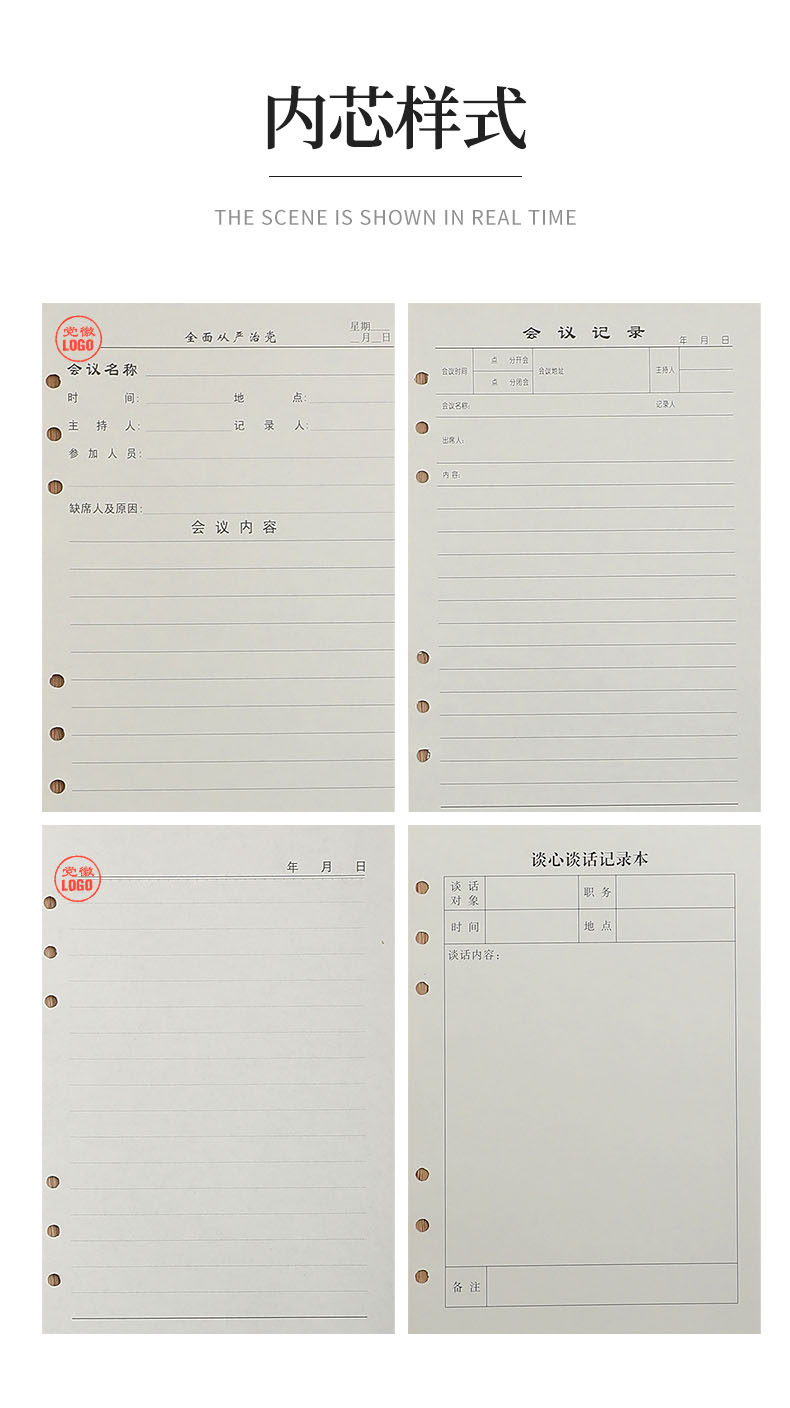 内芯样式
THE SCENE IS SHOWN IN REAL TIME
党徽
LOGO
全面从严治党
星期
月 日
会议名称
时 间: 地 点:
主 持 人: 记 录 人:
参 加 人 员:
缺席人及原因:
会 议 内 容
会 议 记 录
年 月 日
会议时间 点 分开会 会议地址 主持人
点 分闭会
会议名称: 记录人
出席人:
内 容:
党徽
LOGO
年 月 日
谈心谈话记录本
谈 话 职 务
对 象
时 间 地 点
谈话内容:
备 注